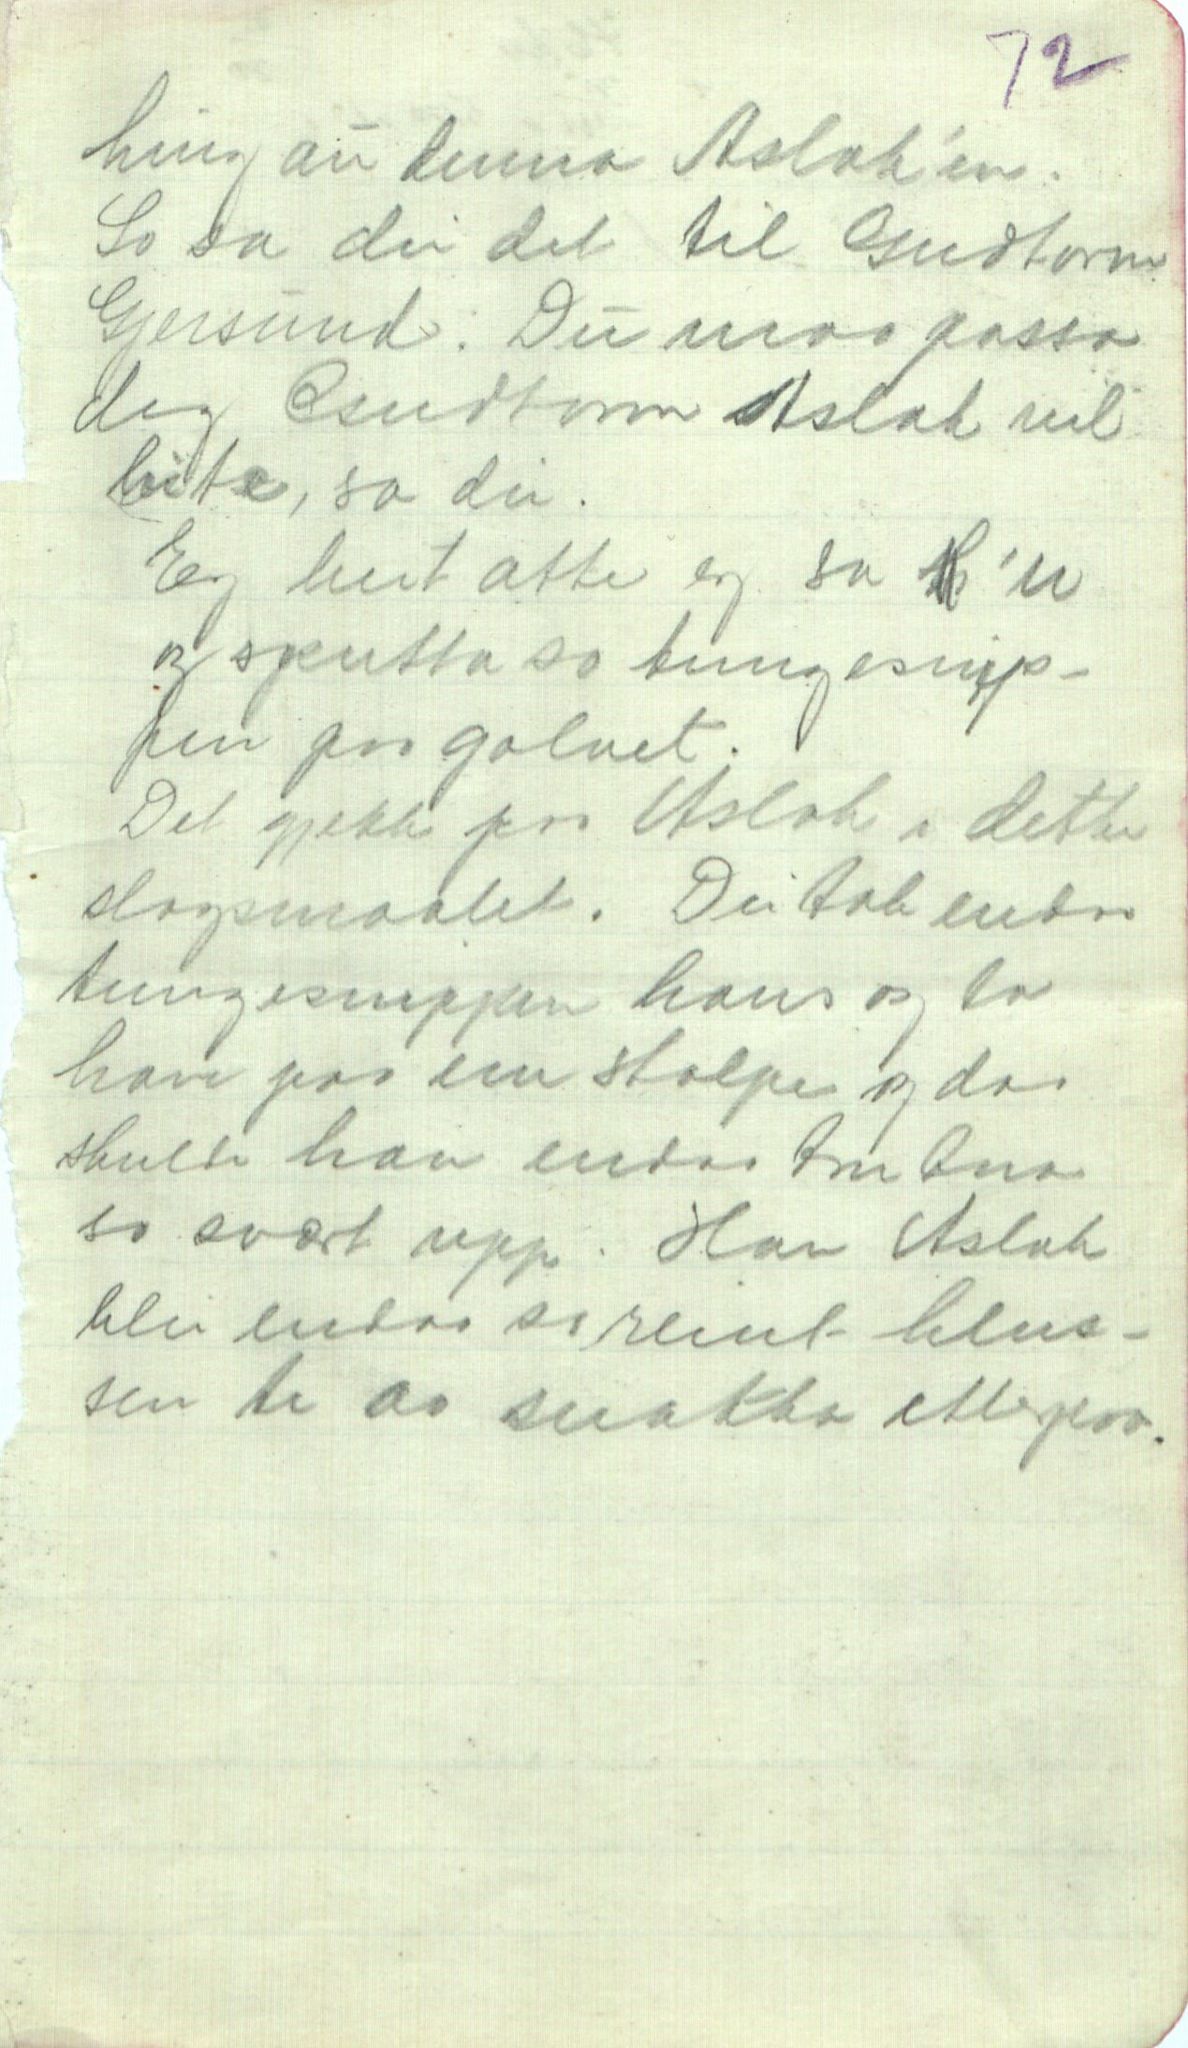 72
hing au denna Aslak'en.
So sa dei det til Gudtorm
Gjersund. Du maa passa
deg Gudtorm Aslak vil
bite, sa dei.
Eg beit atte eg sa 'n
og sputta so tungesnip-
pen paa golvet.
Det gjekk paa Aslak i dette
slagsmaalet. Dei tok endaa
tungesnippen hans og la
han paa ein stolpe og daa
skulde han endaa
so svært upp. Han Aslak
blei endaa so reint bles-
sen te aa snakka etterpaa.